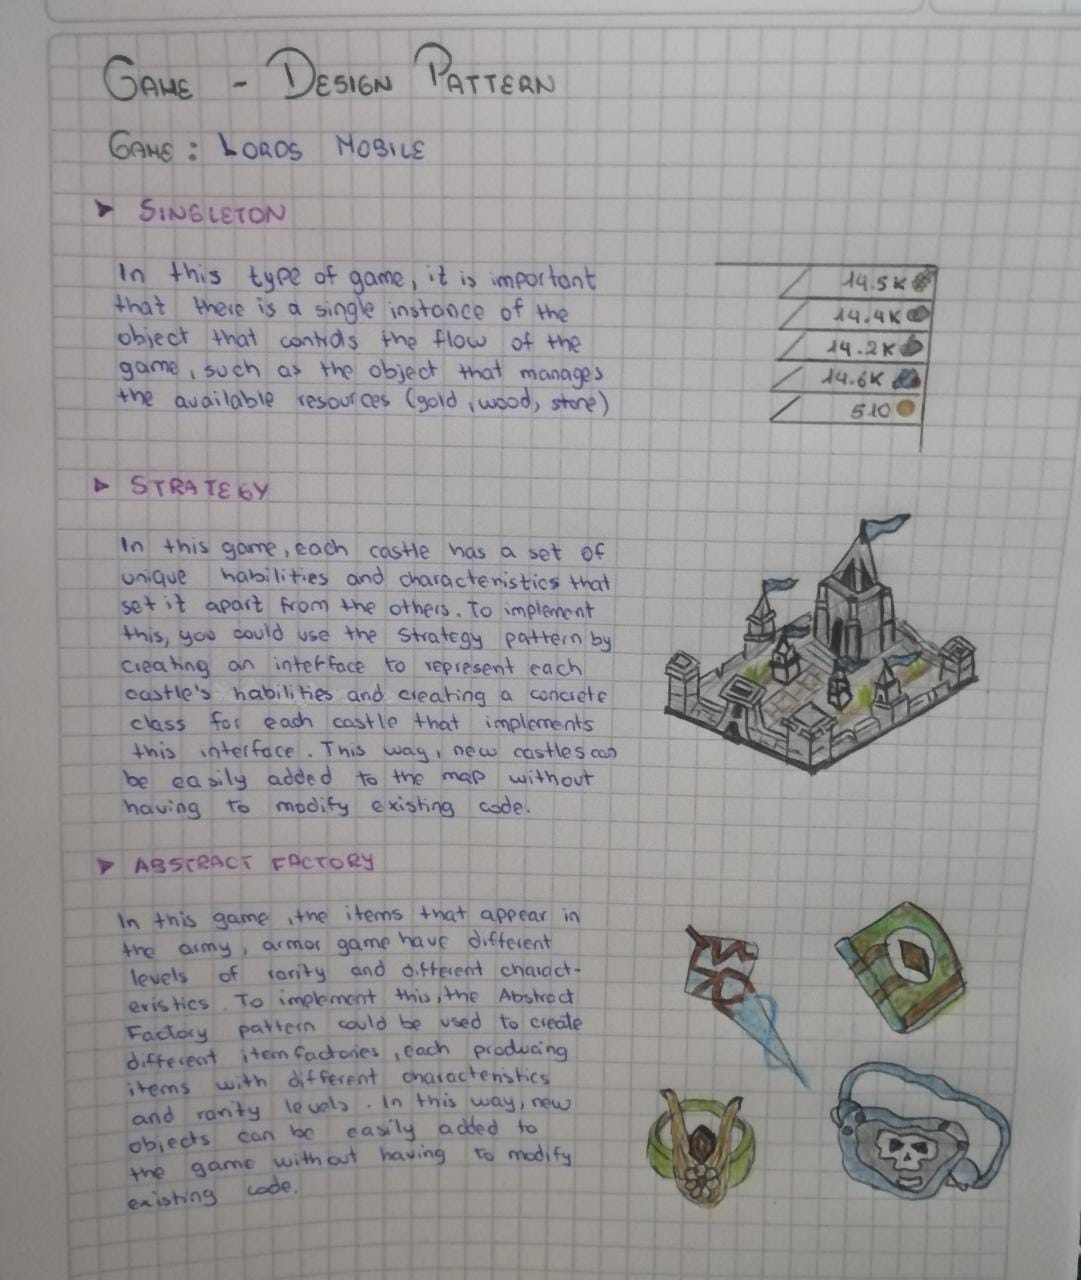 GAME - DESIGN PATTERN
GAME: LORDS MOBILE
SINGLETON
In this type of game, it is important
that there is a single instance of the
object that controls the flow of the
game, such as the object that manages
the available resources (gold, wood, stone)
14.5K
14.4K
14.2K
14.6K
510
STRATEGY
In this game, each castle has a set of
unique habilities and characteristics that
set it apart from the others. To implement
this, you could use the Strategy pattern by
creating an interface to represent each
castle's habilities and creating a concrete
class for each castle that implements
this interface. This way, new castles can
be easily added to the map without
having to modify existing code.
ABSTRACT FACTORY
In this game, the items that appear in
the army, armor game have different
levels of rarity and different charact-
eristics. To implement this, the Abstract
Factory pattern could be used to create
different item factories, each producing
items with different characteristics
and rarity levels. In this way, new
objects can be easily added to
the game without having to modify
existing code.